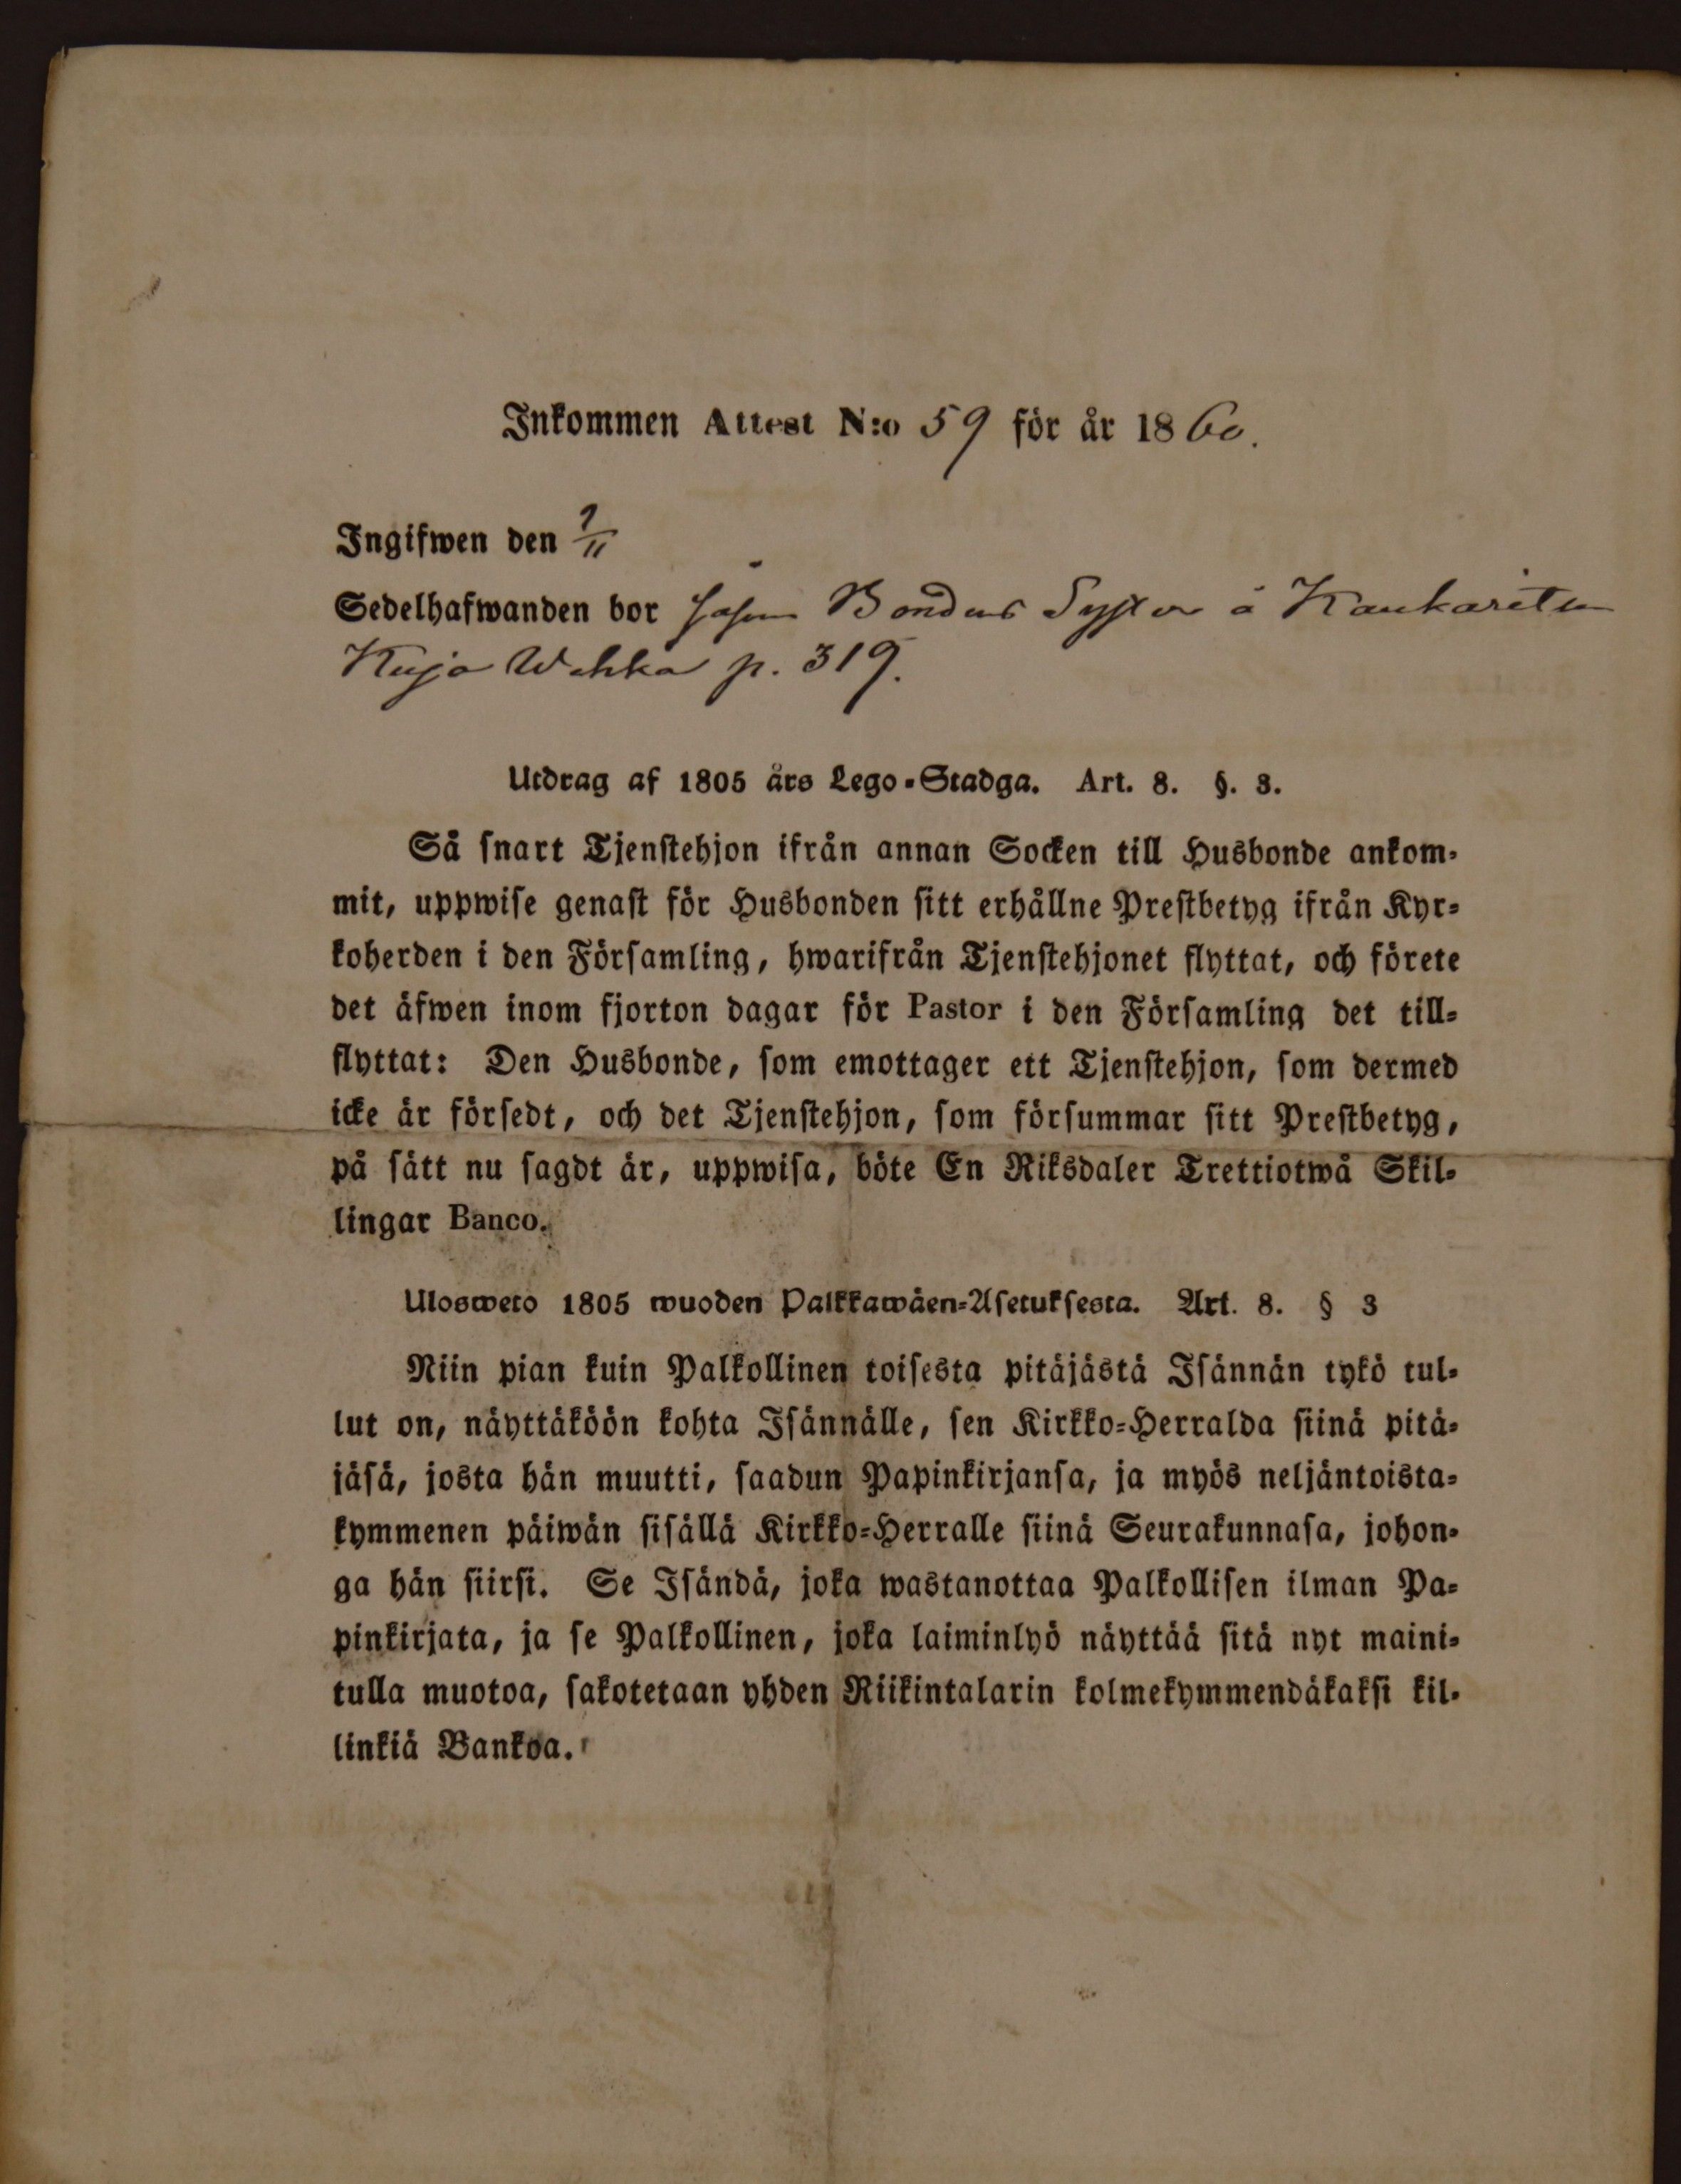 Inkommen Attest N:o 59 för år 1860.
Ingifwen den 9/11
Sedelhafwanden bor såsom Bondens Syster å Kaukaritsa
Kujo Wehka p. 319.
Utdrag af 1805 års Lego-Stadga. Art. 8. §. 3.
Så snart Tjenstehjon ifrån annan Socken till Husbonde ankom-
mit, uppwise genast för Husbonden sitt erhållne Prestbetyg ifrån Kyr-
koherden i den Församling, hwarifrån Tjenstehjonet flyttat, och förete
det äfwen inom fjorton dagar för Pastor i den Församling det till-
flyttat: Den Husbonde, som emottager ett Tjenstehjon, som dermed
icke är försedt, och det Tjenstehjon, som försummar sitt Prestbetyg,
på sätt nu sagdt är, uppwisa, böte En Riksdaler Trettiotwå Skil-
lingar Banco.
Ulosweto 1805 wuoden Palkkawäen-Asetuksesta. Art. 8. § 3
Niin pian kuin Palkollinen toisesta pitäjästä Isännän tykö tul-
lut on, näyttäköön kohta Isännälle, sen Kirkko-Herralda siinä pitä-
jäsä, josta hän muutti, saadun Papinkirjansa, ja myös neljäntoista-
kymmenen päiwän sisällä Kirkko-Herralle siinä Seurakunnasa, johon-
ga hän siirsi. Se Isändä, joka wastanottaa Palkollisen ilman Pa-
pinkirjata, ja se Palkollinen, joka laiminlyö näyttää sitä nyt maini-
tulla muotoa, sakotetaan yhden Riikintalarin kolmekymmendäkaksi kil-
linkiä Bankoa.